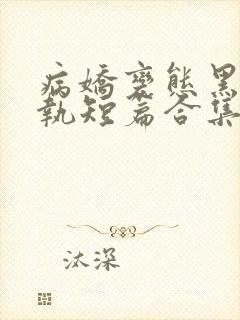 病嬌變態黑
執短篇合集
汰深